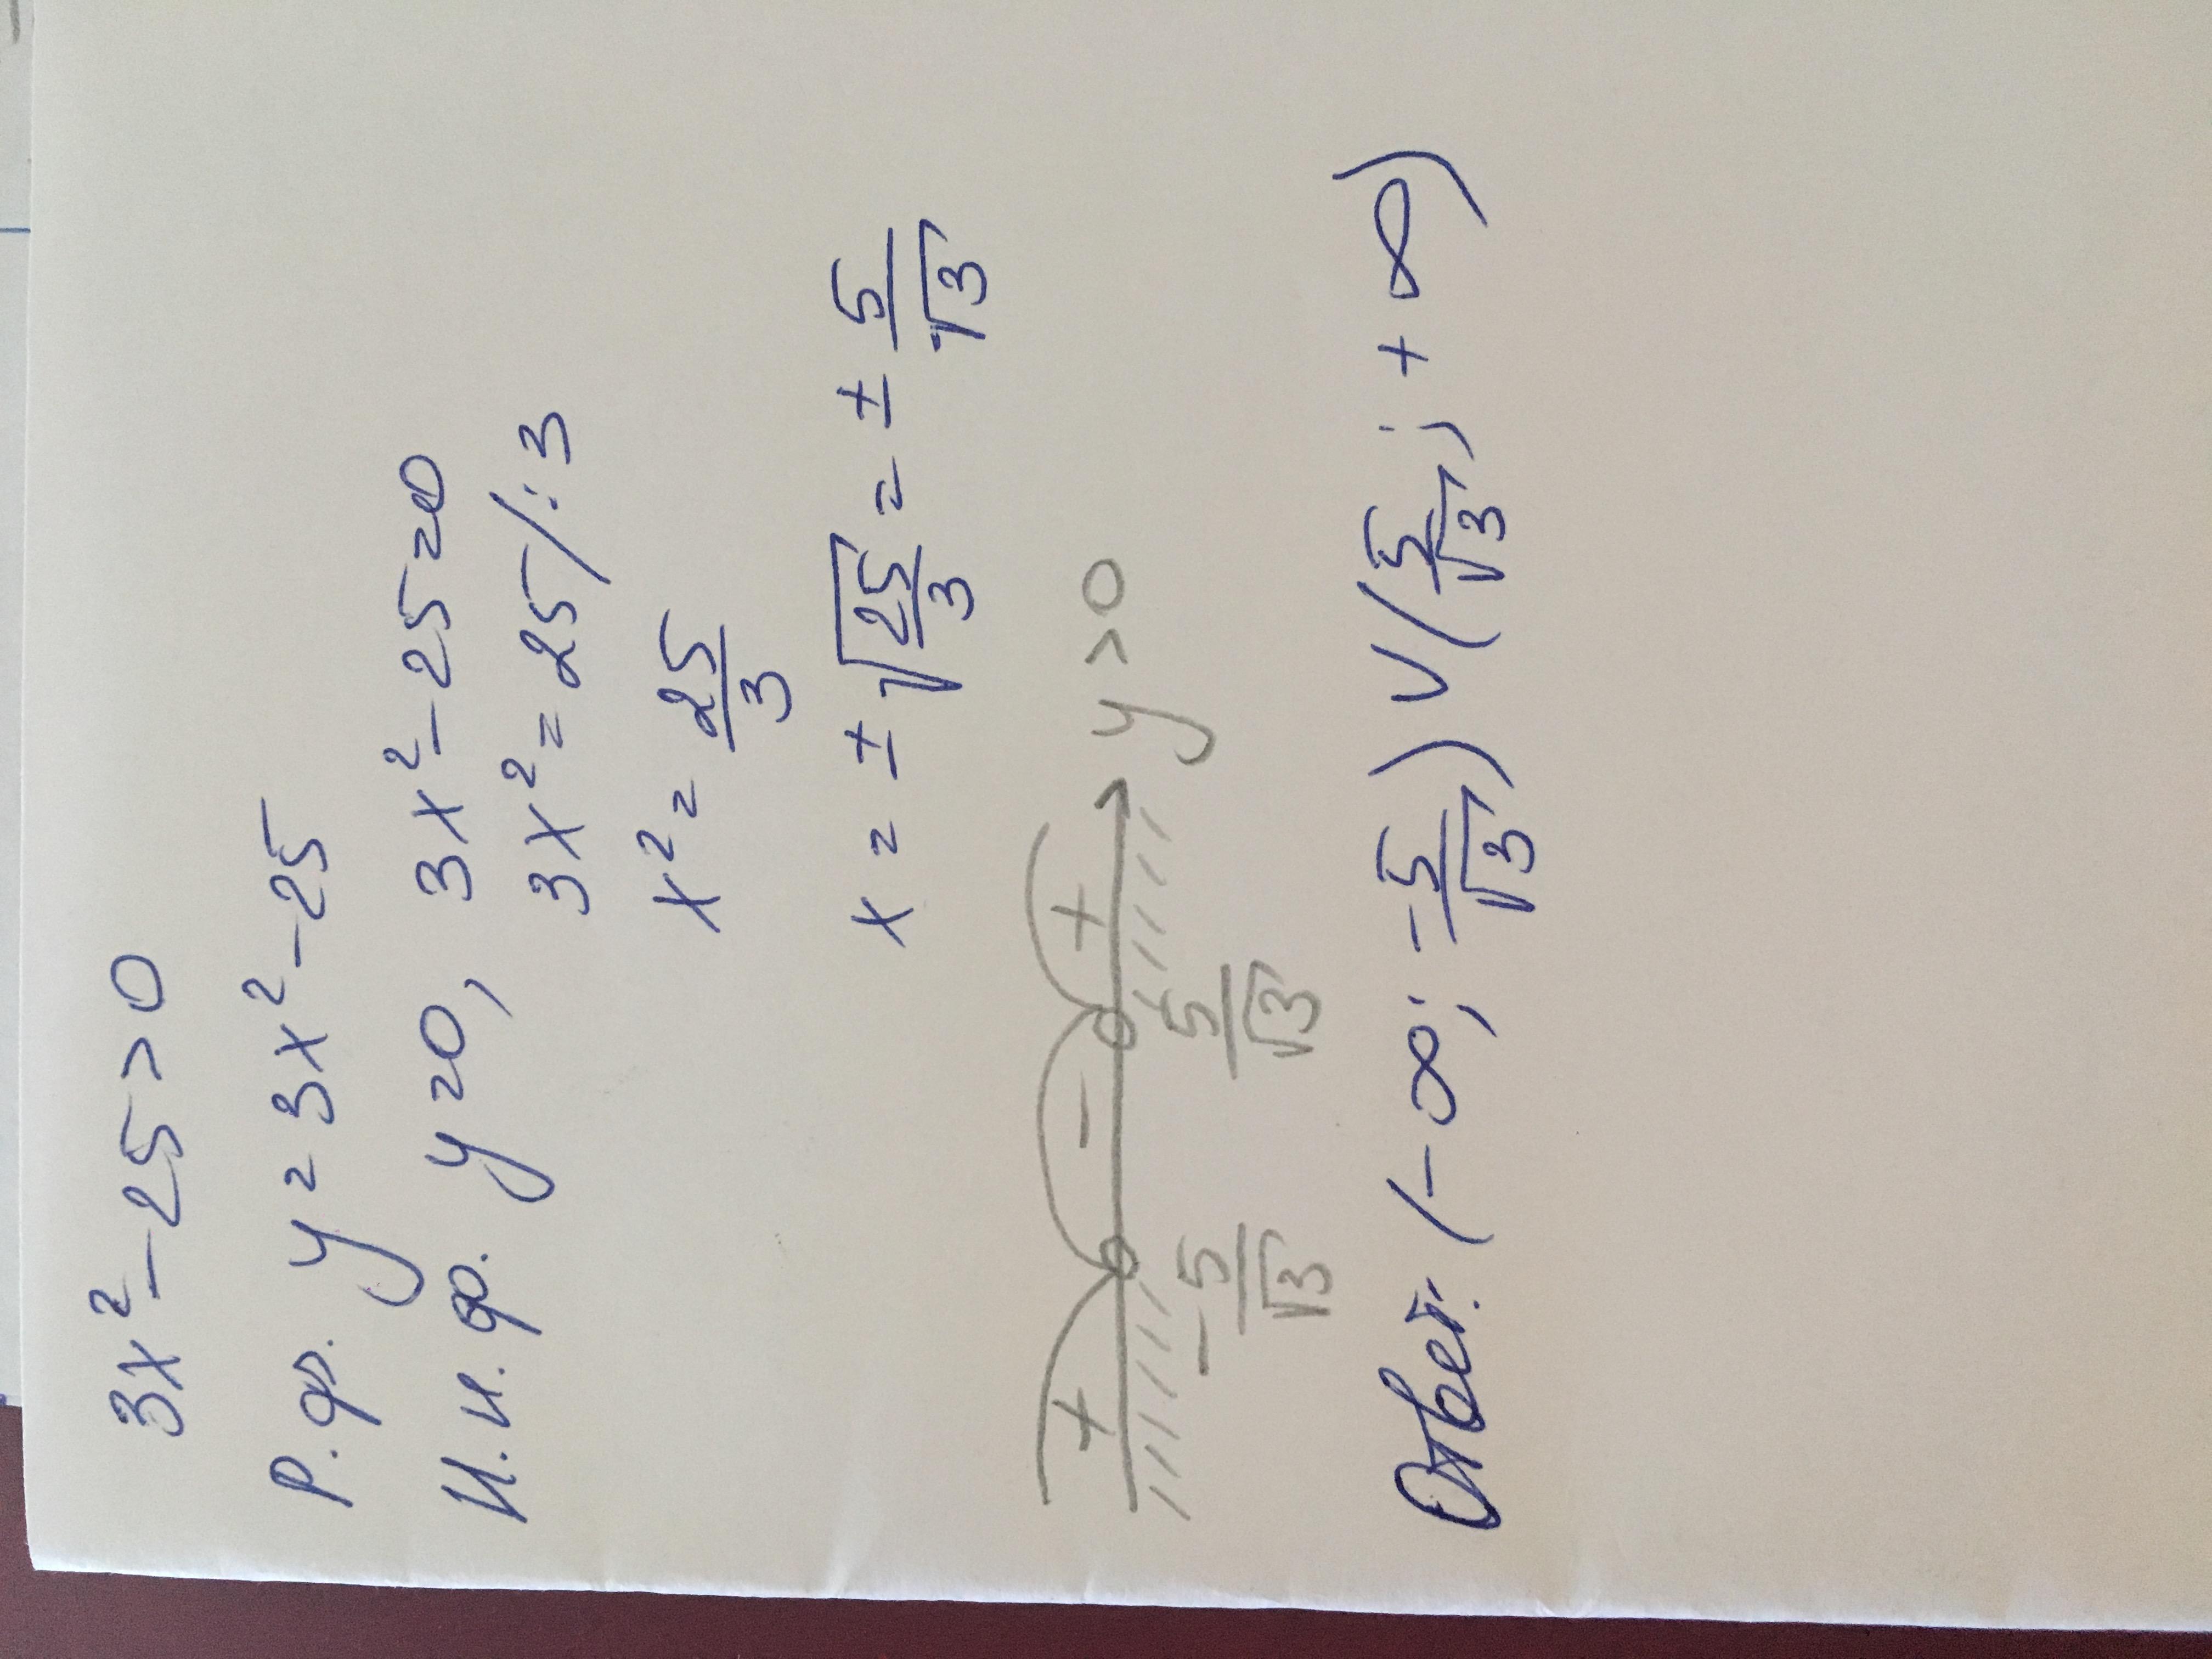 3x² - 25 > 0
Р. ф. y = 3x² - 25
Н. н. ф. y = 0, 3x² - 25 = 0
3x² = 25 / : 3
x² = 25/3
x = ± √(25/3) = ± 5/√3
+ - + y > 0
- 5/√3 5/√3
Ответ: (-∞; -5/√3) ∪ (5/√3; +∞)